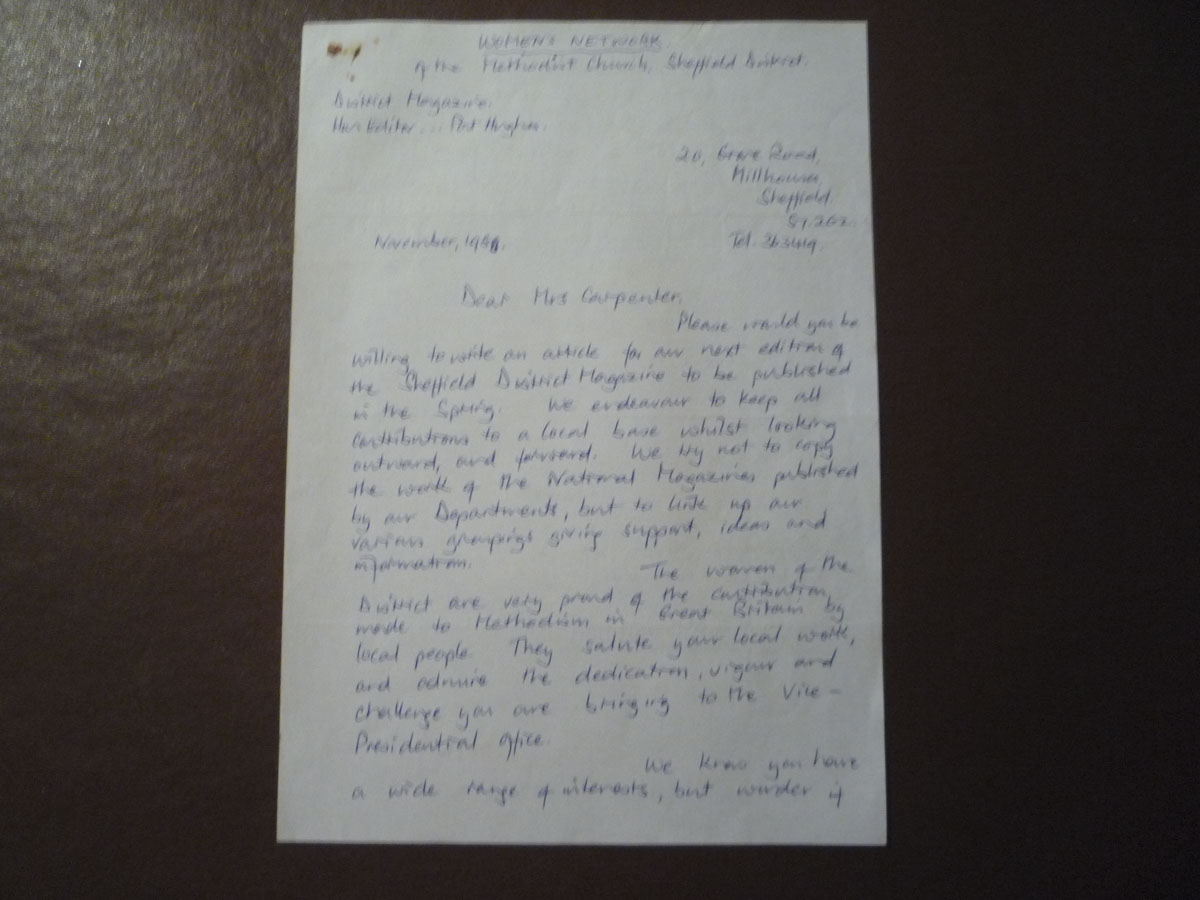 WOMEN'S NETWORK
of the Methodist Church, Sheffield District.
District Magazine.
Hon Editor ... Pat
20, Grove Road,
Millhouses,
Sheffield
S7 2GZ.
November,
Tel.
Dear Mrs Carpenter,
Please would you be
willing to write an article for our next edition of
the Sheffield District Magazine to be published
in the Spring. We endeavour to keep all
contributions to a local base whilst looking
outward, and forward. We try not to copy
the work of the National Magazines published
by our Departments, but to link up our
various groupings giving support, ideas and
information.
The women of the
District are very proud of the contribution,
made to Methodism in Great Britain by
local people They salute your local work,
and admire the dedication, vigour and
challenge you are bringing to the Vice-
Presidential office.
We know you have
a wide range of interests, but wonder if